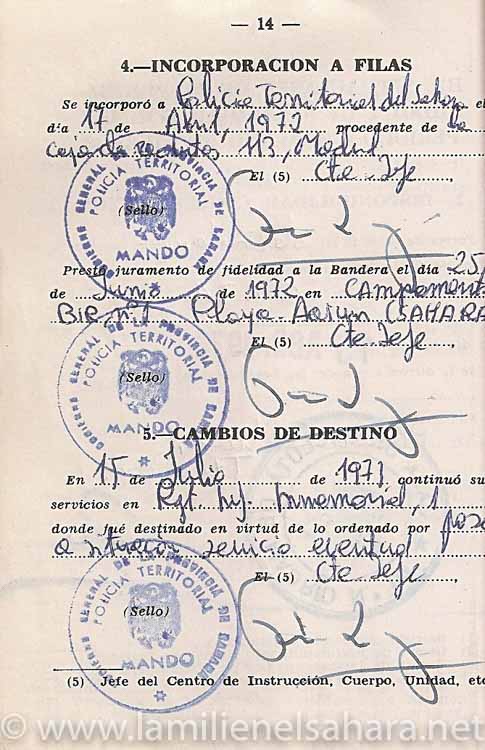 — 14 —
4.—INCORPORACION A FILAS
Se incorporó a Policia Territorial del Sahara el
día 17 de Abril, 1972 procedente de la
Caja de Reclutas 113, Madrid
El (5) Cte Jefe
GOBIERNO GENERAL DE LA PROVINCIA DE SAHARA
POLICIA TERRITORIAL
(Sello)
MANDO
Prestó juramento de fidelidad a la Bandera el día 25
de Junio de 1972 en Campament
BIR nº1 Playa Aaiun (SAHARA
El (5) Cte Jefe
GOBIERNO GENERAL DE LA PROVINCIA DE SAHARA
POLICIA TERRITORIAL
(Sello)
MANDO
5.—CAMBIOS DE DESTINO
En 15 de Julio de 1973 continuó su
servicios en Rgt. Inf. Inmemorial, 1
donde fué destinado en virtud de lo ordenado por pase
a situación servicio eventual
El (5) Cte Jefe
GOBIERNO GENERAL DE LA PROVINCIA DE SAHARA
POLICIA TERRITORIAL
(Sello)
MANDO
(5) Jefe del Centro de Instrucción, Cuerpo, Unidad, etc
© www.lamilienelsahara.net